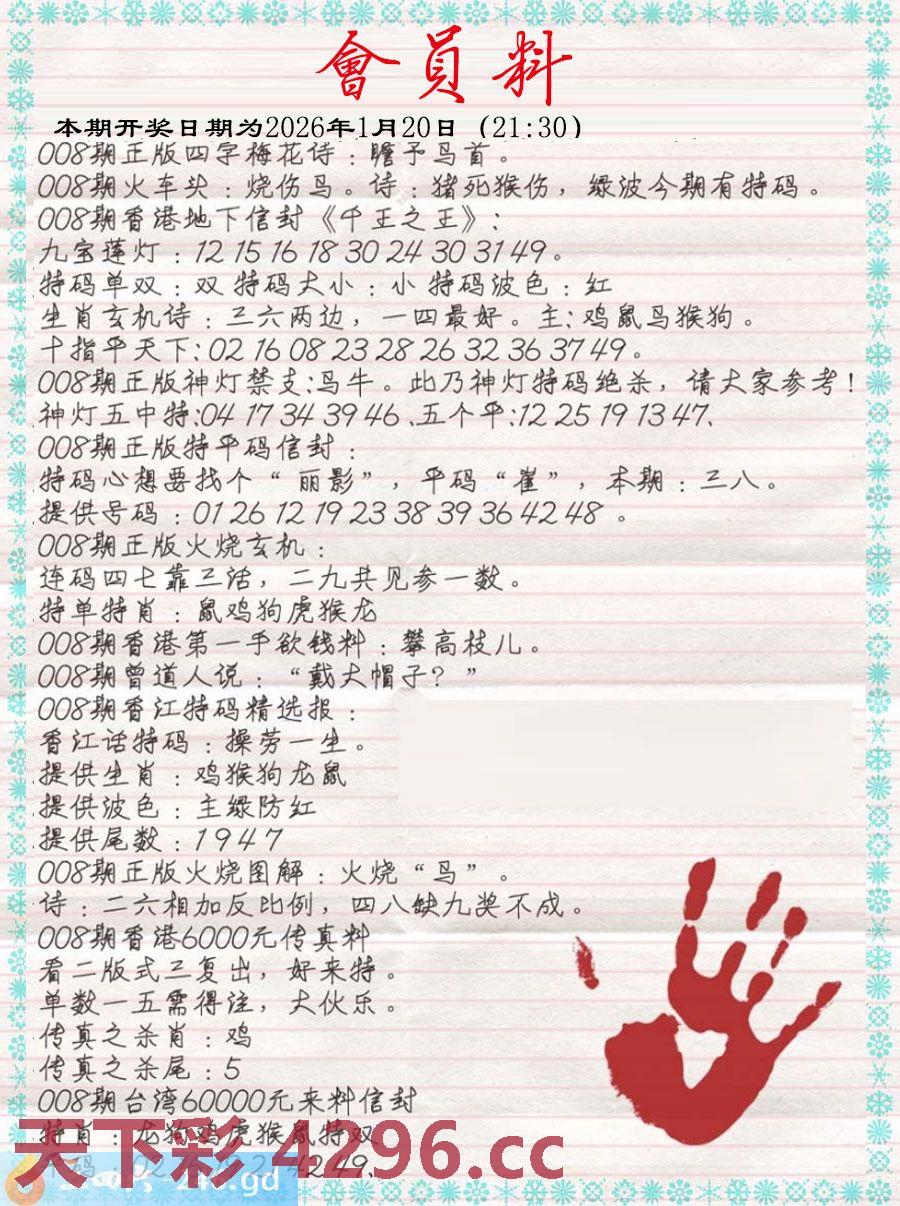 會員料
本期开奖日期为2026年1月20日（21:30）
008期正版四字梅花诗：瞻予鸟首。
008期火车头：烧伤鸟。诗：猪死猴伤，绿波今期有特码。
008期香港地下信封《千王之王》：
九宝莲灯：12 15 16 18 30 24 30 31 49。
特码单双：双 特码大小：小 特码波色：红
生肖玄机诗：三六两边，一四最好。主：鸡鼠鸟猴狗。
十指平天下:02 16 08 23 28 26 32 36 37 49。
008期正版神灯禁支:鸟牛。此乃神灯特码绝杀，请大家参考！
神灯五中特:04 17 34 39 46 .五个平:12 25 19 13 47.
008期正版特平码信封：
特码心想要找个“丽影”，平码“崔”，本期：三八。
提供号码：01 26 12 19 23 38 39 36 42 48 。
008期正版火烧玄机：
连码四七靠三活，二九共见参一数。
特单特肖：鼠鸡狗虎猴龙
008期香港第一手欲钱料：攀高枝儿。
008期曾道人说：“戴大帽子？”
008期香江特码精选报：
香江话特码：操劳一生。
提供生肖：鸡猴狗龙鼠
提供波色：主绿防红
提供尾数：1 9 4 7
008期正版火烧图解：火烧“鸟”。
诗：二六相加反比例，四八缺九奖不成。
008期香港6000元传真料
看二版式三复出，好来特。
单数一五需得注，大伙乐。
传真之杀肖：鸡
传真之杀尾：5
008期台湾60000元来料信封
特肖：龙狗鸡虎猴鼠特双
天下彩 4296.cc
42 49.